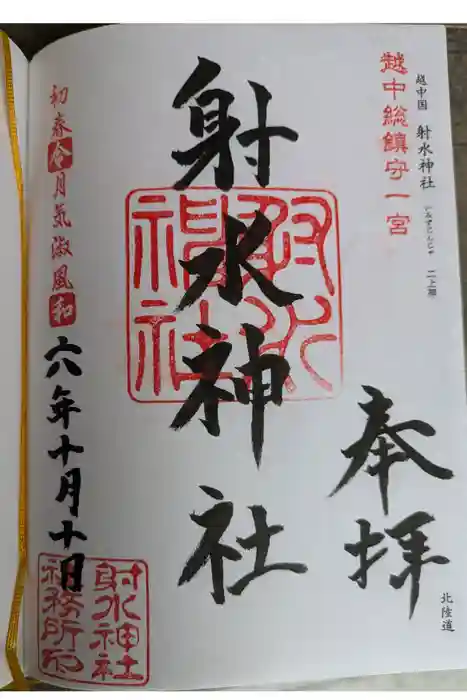 越中国 射水神社 いみずじんじゃ 二上山
越中総鎮守一宮
奉拝
北陸道
射水神社
射水神社
初春令月気淑風和
六年十月十日
射水神社
社務所印